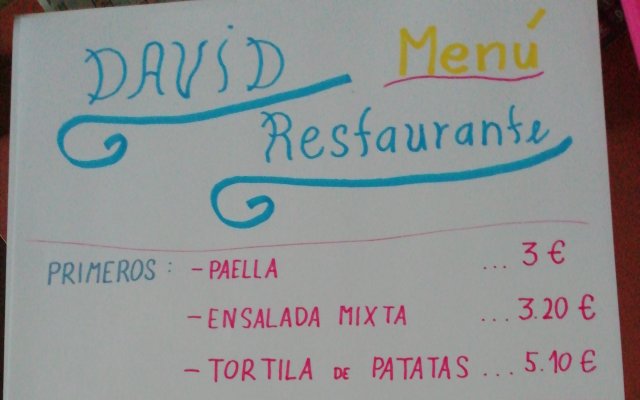 DAViD Menú
Restaurante
PRIMEROS: - PAELLA ... 3 €
- ENSALADA MIXTA ... 3.20 €
- TORTILA DE PATATAS ... 5.10 €